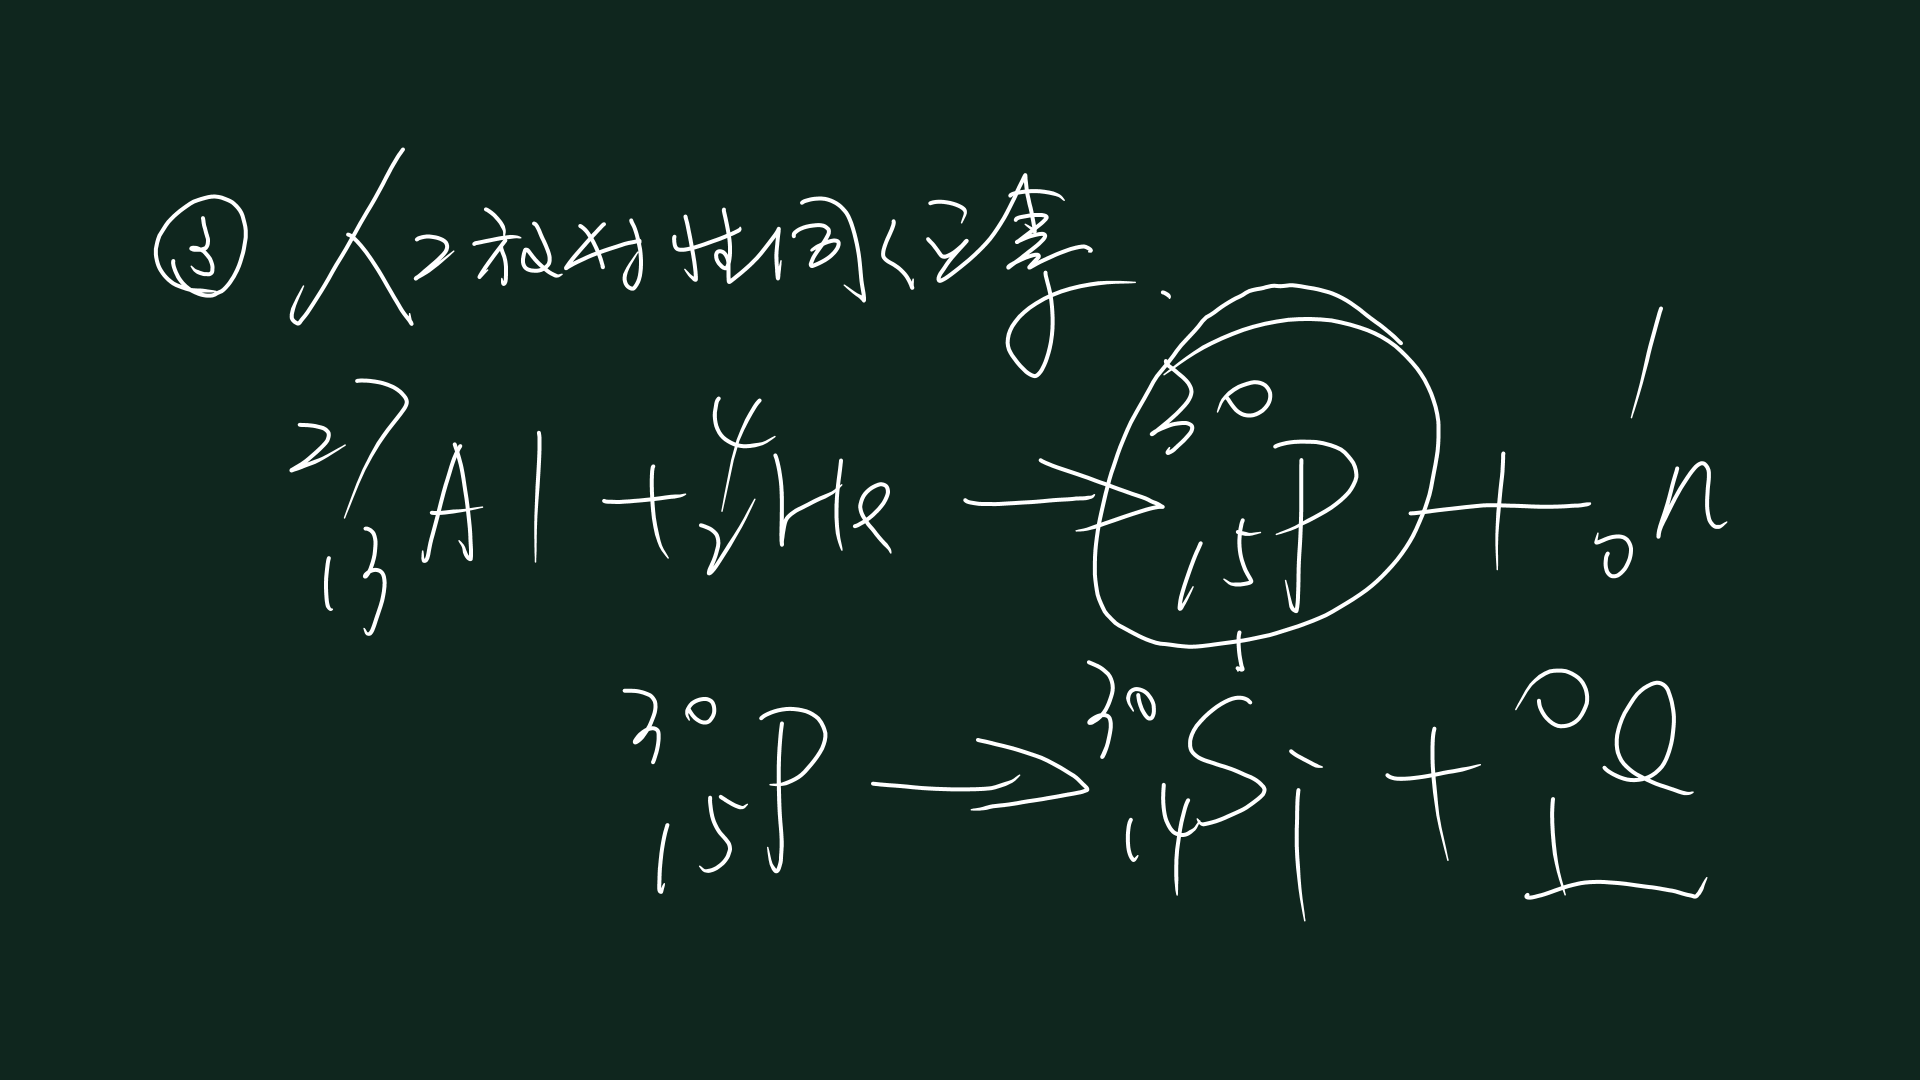 ③人工放射性同位素.
²⁷₁₃Al + ⁴₂He → ³⁰₁₅P + ¹₀n
³⁰₁₅P → ³⁰₁₄Si + ⁰₁e